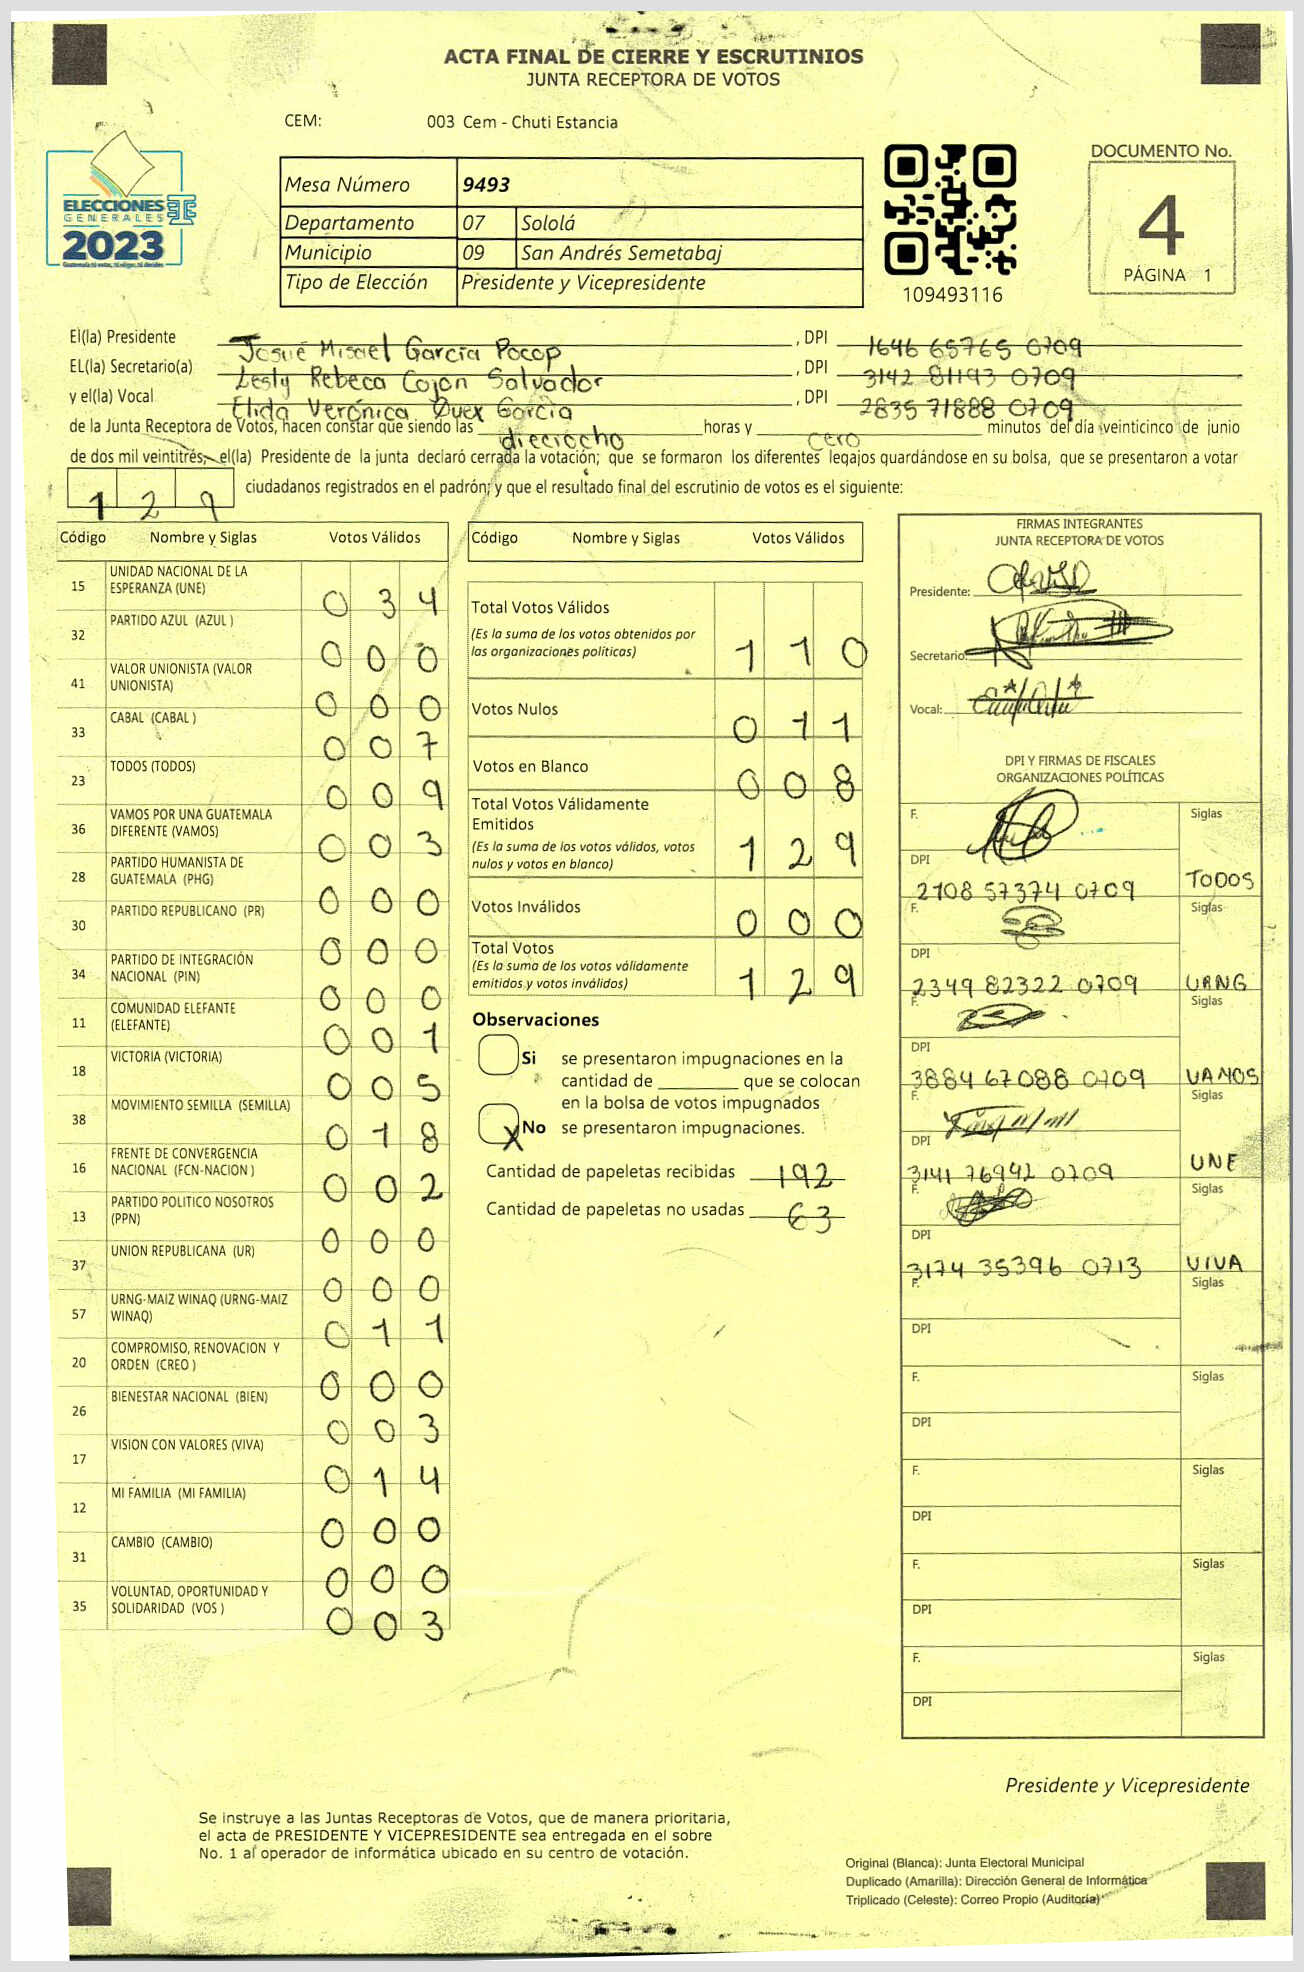 ACTA FINAL DE CIERRE Y ESCRUTINIOS
JUNTA RECEPTORA DE VOTOS
CEM: 003 Cem - Chuti Estancia
ELECCIONES
GENERALES
2023
Mesa Número 9493
Departamento 07 Sololá
Municipio 09 San Andrés Semetabaj
Tipo de Elección Presidente y Vicepresidente
109493116
DOCUMENTO No.
4
PÁGINA 1
El(la) Presidente Josué Misael García Pocop , DPI 1646 65765 0709
EL(la) Secretario(a) Lesly Rebeca Cojon Salvador , DPI 3142 81193 0709
y el(la) Vocal Elida Verónica Quex García , DPI 2835 71888 0709
de la Junta Receptora de Votos, hacen constar que siendo las dieciocho horas y cero minutos del día veinticinco de junio
de dos mil veintitrés, el(la) Presidente de la junta declaró cerrada la votación; que se formaron los diferentes legajos guardándose en su bolsa, que se presentaron a votar
129 ciudadanos registrados en el padrón; y que el resultado final del escrutinio de votos es el siguiente:
Código Nombre y Siglas Votos Válidos
15 UNIDAD NACIONAL DE LA ESPERANZA (UNE) 0 3 4
32 PARTIDO AZUL (AZUL ) 0 0 0
41 VALOR UNIONISTA (VALOR UNIONISTA) 0 0 0
33 CABAL (CABAL ) 0 0 7
23 TODOS (TODOS) 0 0 9
36 VAMOS POR UNA GUATEMALA DIFERENTE (VAMOS) 0 0 3
28 PARTIDO HUMANISTA DE GUATEMALA (PHG) 0 0 0
30 PARTIDO REPUBLICANO (PR) 0 0 0
34 PARTIDO DE INTEGRACIÓN NACIONAL (PIN) 0 0 0
11 COMUNIDAD ELEFANTE (ELEFANTE) 0 0 1
18 VICTORIA (VICTORIA) 0 0 5
38 MOVIMIENTO SEMILLA (SEMILLA) 0 1 8
16 FRENTE DE CONVERGENCIA NACIONAL (FCN-NACION ) 0 0 2
13 PARTIDO POLITICO NOSOTROS (PPN) 0 0 0
37 UNION REPUBLICANA (UR) 0 0 0
57 URNG-MAIZ WINAQ (URNG-MAIZ WINAQ) 0 1 1
20 COMPROMISO, RENOVACION Y ORDEN (CREO ) 0 0 0
26 BIENESTAR NACIONAL (BIEN) 0 0 3
17 VISION CON VALORES (VIVA) 0 1 4
12 MI FAMILIA (MI FAMILIA) 0 0 0
31 CAMBIO (CAMBIO) 0 0 0
35 VOLUNTAD, OPORTUNIDAD Y SOLIDARIDAD (VOS ) 0 0 3
Código Nombre y Siglas Votos Válidos
Total Votos Válidos
(Es la suma de los votos obtenidos por
las organizaciones políticas) 1 1 0
Votos Nulos 0 1 1
Votos en Blanco 0 0 8
Total Votos Válidamente
Emitidos
(Es la suma de los votos válidos, votos
nulos y votos en blanco) 1 2 9
Votos Inválidos 0 0 0
Total Votos
(Es la suma de los votos válidamente
emitidos y votos inválidos) 1 2 9
Observaciones
Si se presentaron impugnaciones en la
cantidad de ________ que se colocan
en la bolsa de votos impugnados
X No se presentaron impugnaciones.
Cantidad de papeletas recibidas 192
Cantidad de papeletas no usadas 63
FIRMAS INTEGRANTES
JUNTA RECEPTORA DE VOTOS
Presidente:
Secretario:
Vocal:
DPI Y FIRMAS DE FISCALES
ORGANIZACIONES POLÍTICAS
F. Siglas
DPI 2108 57374 0709 TODOS
F. Siglas
DPI 2349 82322 0709 URNG
F. Siglas
DPI 3884 67088 0709 VAMOS
F. Siglas
DPI 3141 76942 0709 UNE
F. Siglas
DPI 3174 35396 0713 VIVA
F. Siglas
DPI
F. Siglas
DPI
F. Siglas
DPI
F. Siglas
DPI
F. Siglas
DPI
Presidente y Vicepresidente
Se instruye a las Juntas Receptoras de Votos, que de manera prioritaria,
el acta de PRESIDENTE Y VICEPRESIDENTE sea entregada en el sobre
No. 1 al operador de informática ubicado en su centro de votación.
Original (Blanca): Junta Electoral Municipal
Duplicado (Amarilla): Dirección General de Informática
Triplicado (Celeste): Correo Propio (Auditoría)